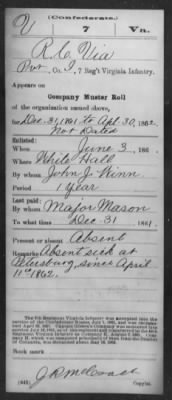 (Confederate.)
V 7 Va.
R. C. Via
Pvt, Co. I, 7 Reg't Virginia Infantry.
Appears on
Company Muster Roll
of the organization named above,
for Dec. 31, 1861 to Apl. 30, 1862.
Not Dated
Enlisted:
When June 3, 186
Where White Hall
By whom John J. Winn
Period 1 year
Last paid:
By whom Major Mason
To what time Dec 31, 1861.
Present or absent Absent
Remarks: Absent sick at
Petersburg, since April
11th 1862.
Book mark:
(642) Copyist.